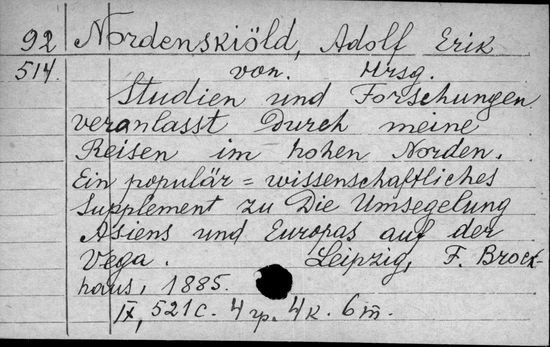 92 Nordenskiöld, Adolf Erik
514. von. Hrsg.
Studien und Forschungen
veranlasst Durch meine
Reisen im hohen Norden.
Ein populär = wissenschaftliches
Supplement zu Die Umsegelung
Asiens und Europas auf der
Vega. Leipzig, F. Brock-
haus, 1885.
IX, 521 c. 4 р., 4 к. 6 m.